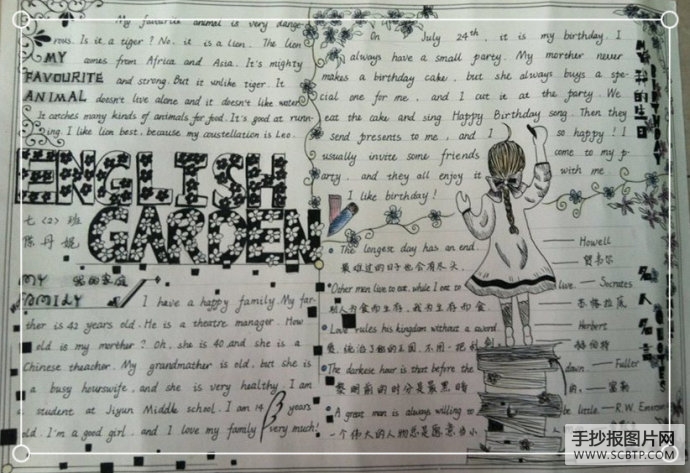 My favourite animal is very dange-
rous. Is it a tiger? No, it is a lion. The lion
comes from Africa and Asia. It's mighty
and strong. But it unlike tiger. It
doesn't live alone and it doesn't like water.
It catches many kinds of animals for food. It's good at runn-
ing. I like lion best, because my constellation is Leo.
MY
FAVOURITE
ANIMAL
ENGLISH
GARDEN
七(2)班
陈丹妮
MY 我的家庭
I have a happy family. My fat-
ther is 42 years old. He is a theatre manager. How
old is my morther? Oh, she is 40 and she is a
Chinese theacher. My grandmother is old, but she is
a busy hourswife, and she is very healthy. I am
a student at Jiyun Middle school. I am 14 years
old. I'm a good girl, and I love my family very much!
On July 24th, it is my birthday. I
always have a small party. My morther never
makes a birthday cake, but she always buys a spe-
cial one for me, and I cut it at the party. We
eat the cake and sing Happy Birthday song. Then they
send presents to me, and I so happy! I
usually invite some friends come to my p-
arty, and they all enjoy it with me.
I like birthday!
我的生日
The longest day has an end. —— Howell
最难过的日子也会有尽头。
Other men live to eat, while I eat to live. —— Socrates
别人为食而生存，我为生存而食 苏格拉底
Love rules his kingdom without a sword. Herbert
爱，统治了他的王国，不用一把利剑 赫伯特
The darkese hour is that before the down. —— Fuller
黎明前的时分是最黑暗的。—— 富勒
A great man is always willing to be little. —— R.W. Emerson
一个伟大的人物总是愿意当小
名人名言
QUOTES
手抄报图片网
WWW.SCBTP.COM